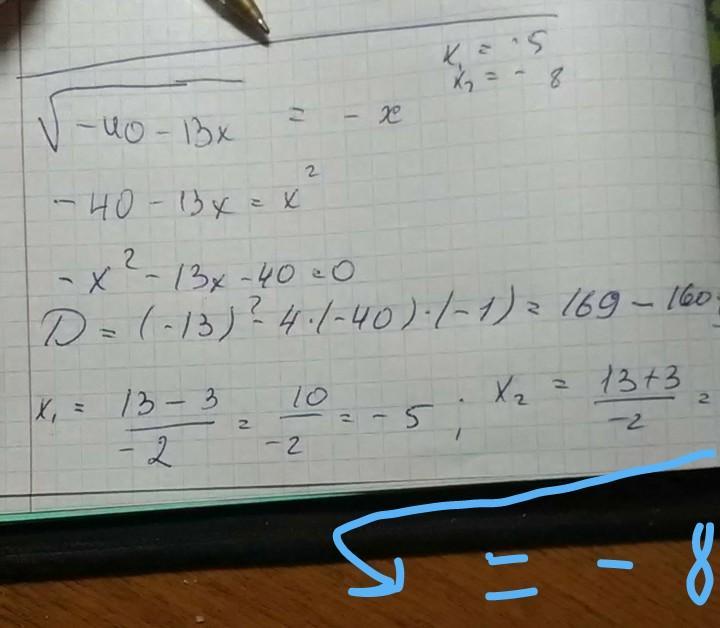 x₁ = -5
x₂ = - 8
√(-40 - 13x) = - x
-40 - 13x = x²
-x² - 13x - 40 = 0
D = (-13)² - 4·(-40)·(-1) = 169 - 160
x₁ = (13 - 3)/(-2) = 10/(-2) = -5 ; x₂ = (13+3)/(-2) =
= - 8